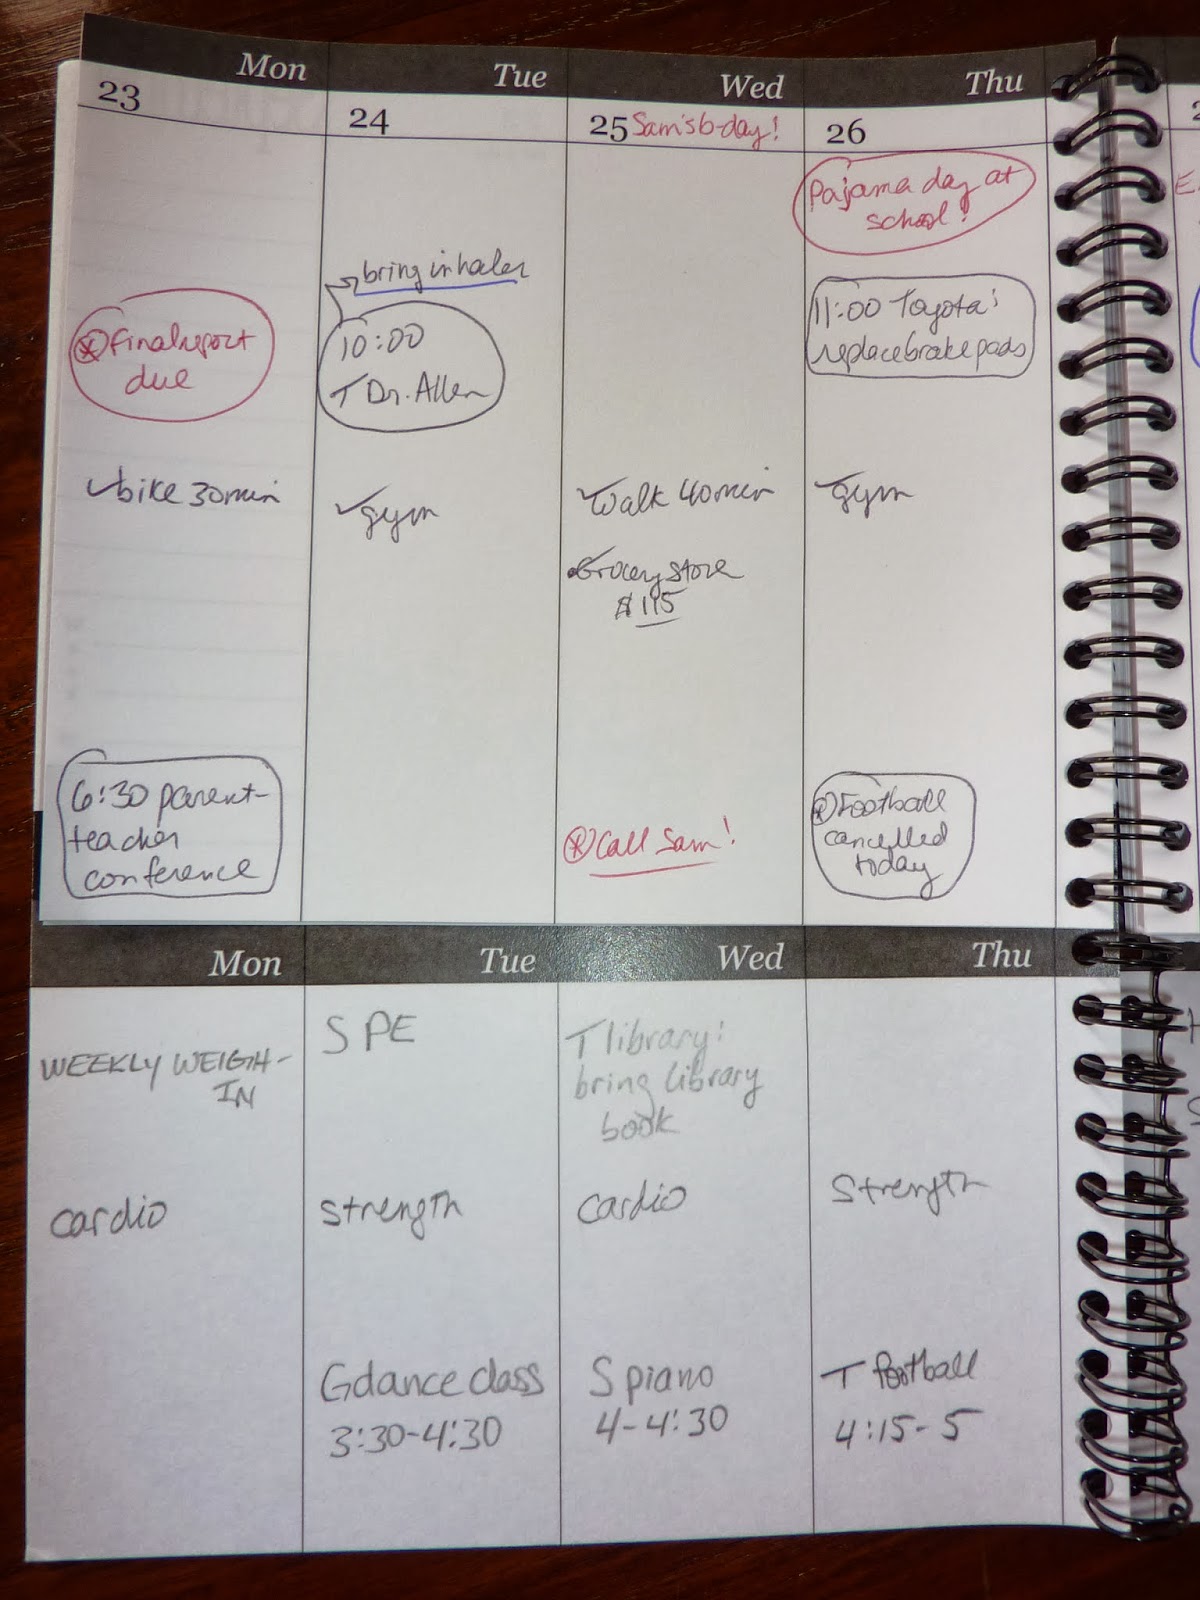 Mon
Tue
Wed
Thu
23
24
25 Sam's b-day!
26
Final report
due
✓bike 30 min
6:30 parent-
teacher
conference
bring inhaler
10:00
T Dr. Allen
✓gym
✓Walk 40 min
Grocery store
$115
Call Sam!
Pajama day at
school!
11:00 Toyota:
replace brake pads
✓gym
Football
cancelled
today
Mon
Tue
Wed
Thu
WEEKLY WEIGH-
IN
cardio
S PE
strength
G dance class
3:30-4:30
T library:
bring library
book
cardio
S piano
4-4:30
Strength
T football
4:15-5